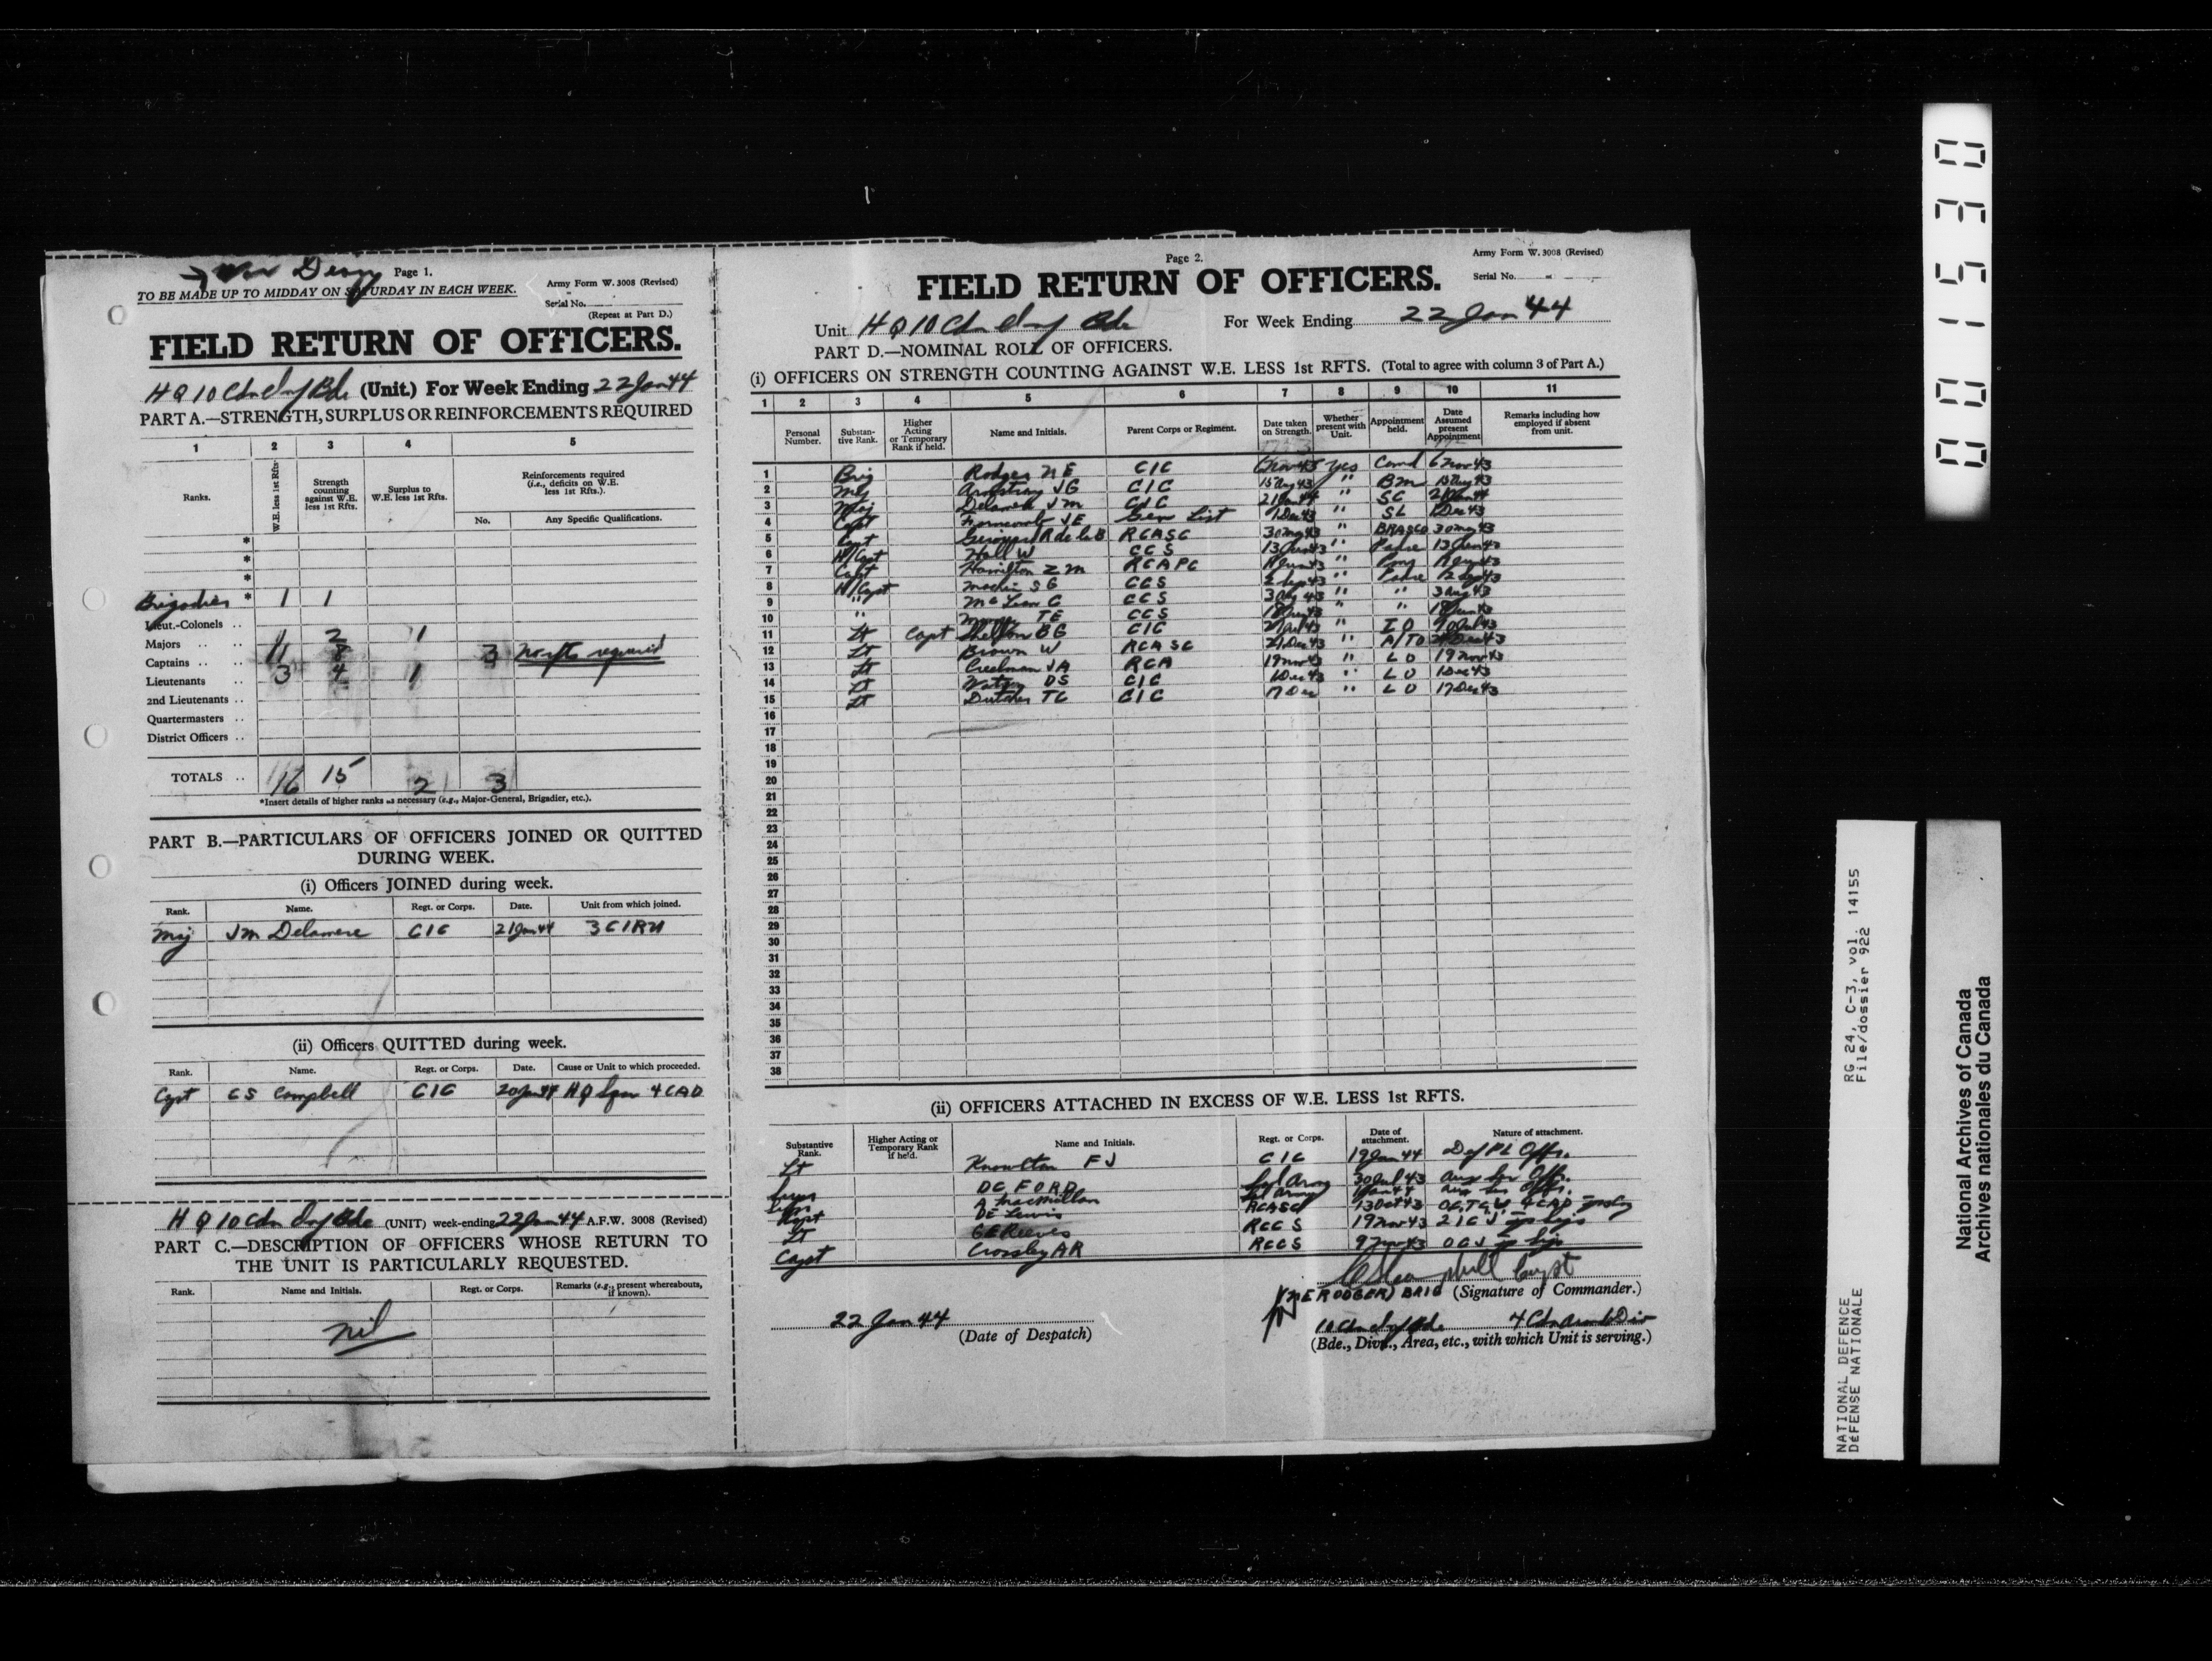 Page 1.
TO BE MADE UP TO MIDDAY ON SATURDAY IN EACH WEEK.
Army Form W. 3008 (Revised)
Serial No.
(Repeat at Part D.)
FIELD RETURN OF OFFICERS.
H Q 10 Cdn Inf Bde (Unit.) For Week Ending 22 Jan 44
PART A.—STRENGTH, SURPLUS OR REINFORCEMENTS REQUIRED
1 2 3 4 5
Ranks. W.E. less 1st Rfts. Strength counting against W.E. less 1st Rfts. Surplus to W.E. less 1st Rfts. Reinforcements required (i.e., deficits on W.E. less 1st Rfts.).
No. Any Specific Qualifications.
*
*
*
Brigadier * 1 1
Lieut.-Colonels ..
Majors .. .. 1 2 1
Captains .. .. 11 8 3 no rfts required
Lieutenants .. 3 4 1
2nd Lieutenants ..
Quartermasters ..
District Officers ..
TOTALS .. 16 15 2 3
*Insert details of higher ranks as necessary (e.g., Major-General, Brigadier, etc.).
PART B.—PARTICULARS OF OFFICERS JOINED OR QUITTED
DURING WEEK.
(i) Officers JOINED during week.
Rank. Name. Regt. or Corps. Date. Unit from which joined.
Maj JM Delamere CIC 21 Jan 44 3 CIRU
(ii) Officers QUITTED during week.
Rank. Name. Regt. or Corps. Date. Cause or Unit to which proceeded.
Capt CS Campbell CIC 20 Jan 44 HQ Sqn 4 CAD
H Q 10 Cdn Inf Bde (UNIT) week-ending 22 Jan 44 A.F.W. 3008 (Revised)
PART C.—DESCRIPTION OF OFFICERS WHOSE RETURN TO
THE UNIT IS PARTICULARLY REQUESTED.
Rank. Name and Initials. Regt. or Corps. Remarks (e.g., present whereabouts, if known).
nil
Page 2.
Army Form W. 3008 (Revised)
Serial No.
FIELD RETURN OF OFFICERS.
Unit H Q 10 Cdn Inf Bde For Week Ending 22 Jan 44
PART D.—NOMINAL ROLL OF OFFICERS.
(i) OFFICERS ON STRENGTH COUNTING AGAINST W.E. LESS 1st RFTS. (Total to agree with column 3 of Part A.)
1 2 3 4 5 6 7 8 9 10 11
Personal Number. Substantive Rank. Higher Acting or Temporary Rank if held. Name and Initials. Parent Corps or Regiment. Date taken on Strength. Whether present with Unit. Appointment held. Date Assumed present Appointment Remarks including how employed if absent from unit.
1 Brig Rodger NE CIC 6 Nov 43 yes Comd 6 Nov 43
2 Maj Armstrong JG CIC 15 Aug 43 " BM 15 Aug 43
3 Maj Delamere JM CIC 21 Jan 44 " SC 21 Jan 44
4 Capt JE Gen List 1 Dec 43 " SL 1 Dec 43
5 Capt R de la B RCASC 30 " BRASCO 30
6 H/Capt Hall W CCS 13 43 " Padre 13 43
7 Capt Hamilton ZM RCAPC 43 " Pmr 43
8 H/Capt SG CCS 2 Sep 43 " Padre 2 Sep 43
9 " McLean C CCS 3 Aug 43 " " 3 Aug 43
10 " TE CCS 18 43 " " 18 43
11 Lt Capt Shelton BG CIC Jul 43 " IO Jul 43
12 Lt Brown W RCASC 21 Dec 43 " A/TO 21 Dec 43
13 Lt Creelman JA RCA 19 Nov 43 " LO 19 Nov 43
14 Lt Watson DS CIC 1 Dec 43 " LO 1 Dec 43
15 Lt Dutcher TC CIC 17 Dec " LO 17 Dec 43
16
17
18
19
20
21
22
23
24
25
26
27
28
29
30
31
32
33
34
35
36
37
38
(ii) OFFICERS ATTACHED IN EXCESS OF W.E. LESS 1st RFTS.
Substantive Rank. Higher Acting or Temporary Rank if held. Name and Initials. Regt. or Corps. Date of attachment. Nature of attachment.
Lt Knowlton FJ CIC 19 Jan 44 Def Pl Offr.
Supr DC FORD Sal Army 30 Jul 43 Aux Ser Offr.
Supr A MacMillan Sal Army 1 Jan 44 Aux Ser Offr.
Capt DE Lewis RCASC 13 Oct 43
Lt GE Reeves RCCS 19 Nov 43 2IC J Sigs
Capt Crossley AR RCCS 9 Nov 43 OC J Sigs
CS Campbell Capt
(NE RODGER) BRIG (Signature of Commander.)
22 Jan 44
(Date of Despatch)
10 Cdn Inf Bde 4 Cdn Armd Div
(Bde., Divn., Area, etc., with which Unit is serving.)
001530
RG 24, C-3, vol. 14155
File/dossier 922
NATIONAL DEFENCE
DÉFENSE NATIONALE
National Archives of Canada
Archives nationales du Canada